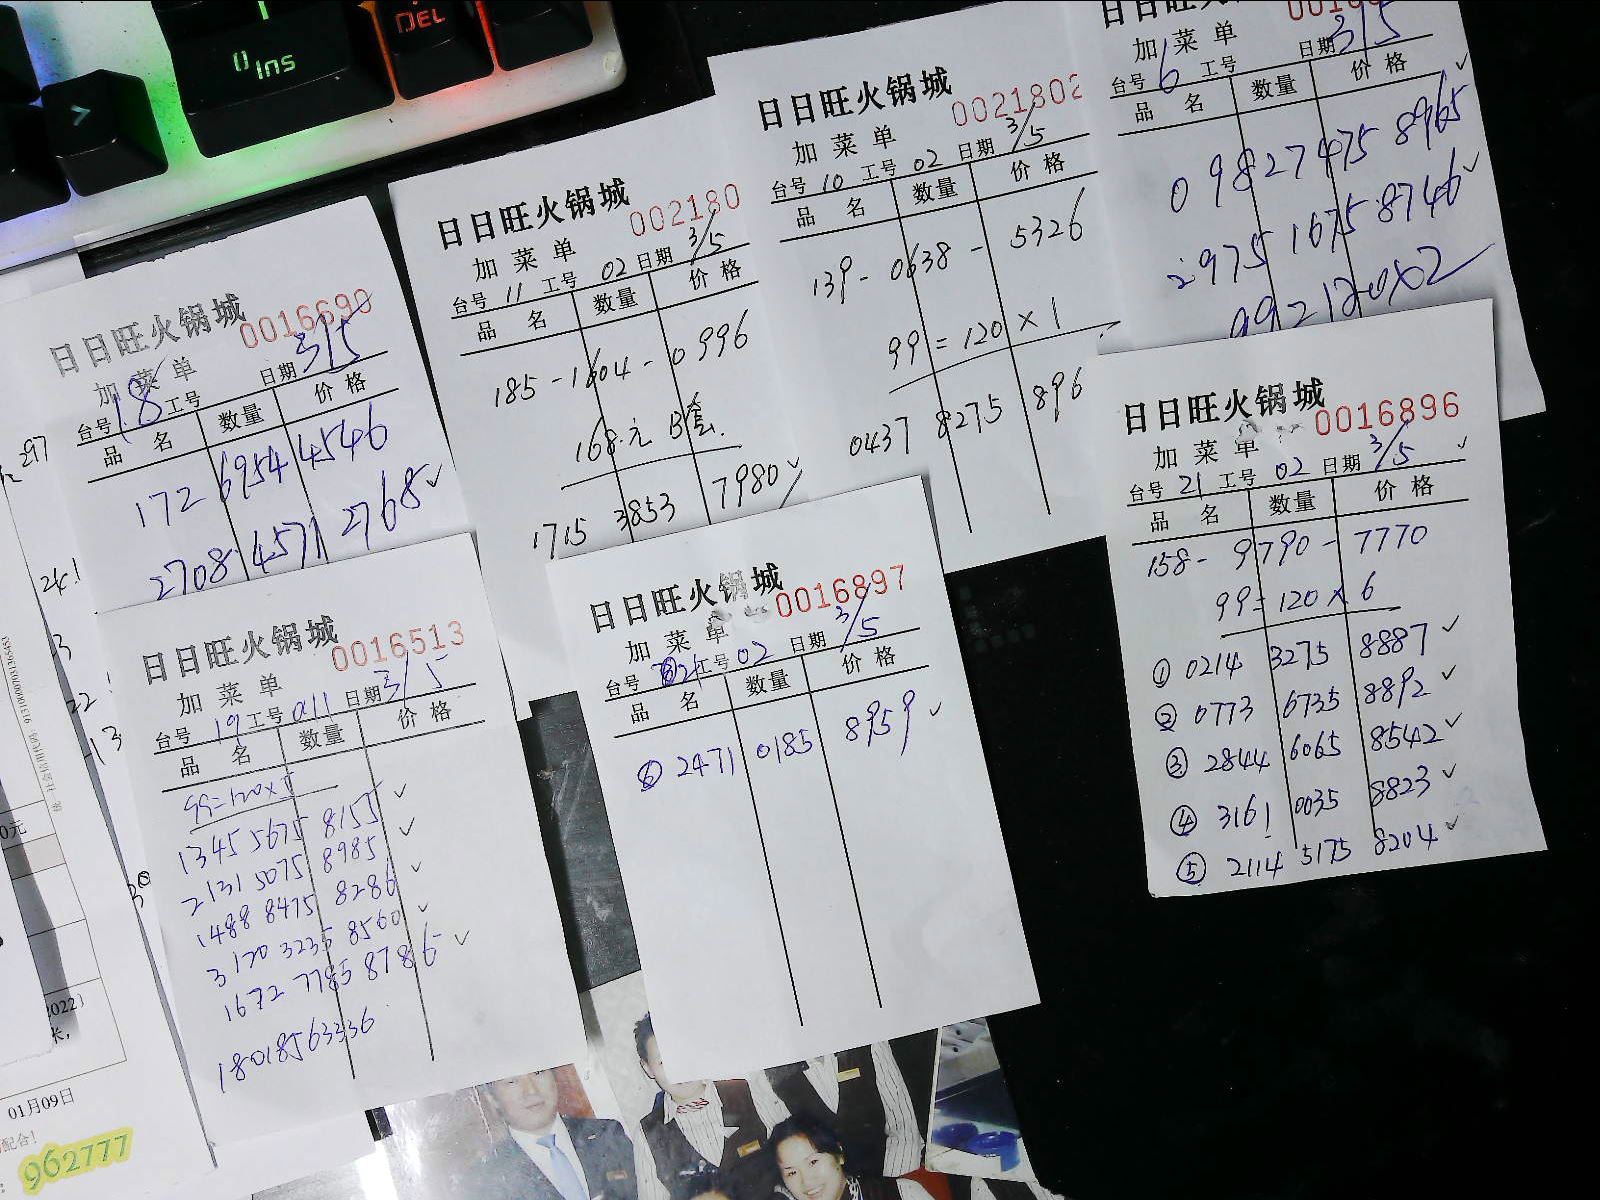 Ins
DEL
日日旺火锅城
0016690
加菜单 日期 3/5
台号 18 工号
品名 数量 价格
172 6954 4546
2708 4571 2768
日日旺火锅城
002180
加菜单
台号 11 工号 02 日期 3/5
品名 数量 价格
185-1604-0996
168元 B套
1715 3853 7980
日日旺火锅城
0021802
加菜单
台号 10 工号 02 日期 3/5
品名 数量 价格
139-0638-5326
99=120×1
0437 8275 896
日日旺火锅城
加菜单 日期 3/5
台号 6 工号
品名 数量 价格
0 9827475 8965
2975 1675 8746
992120×2
日日旺火锅城
0016513
加菜单
台号 19 工号 011 日期 3/5
品名 数量 价格
99=120×5
1345 5675 8155
2131 5075 8985
1488 8475 8286
3120 3235 8560
1672 7785 8786
18018563336
日日旺火锅城
0016897
加菜单
台号 21 工号 02 日期 3/5
品名 数量 价格
⑥ 2471 0185 8959
日日旺火锅城
0016896
加菜单
台号 21 工号 02 日期 3/5
品名 数量 价格
158-9790-7770
99=120×6
① 0214 3275 8887
② 0773 6735 8892
③ 2844 6065 8542
④ 3161 0035 8823
⑤ 2114 5175 8204
297
241
3
22
13
30
0元
2022)
01月09日
配合!
962777